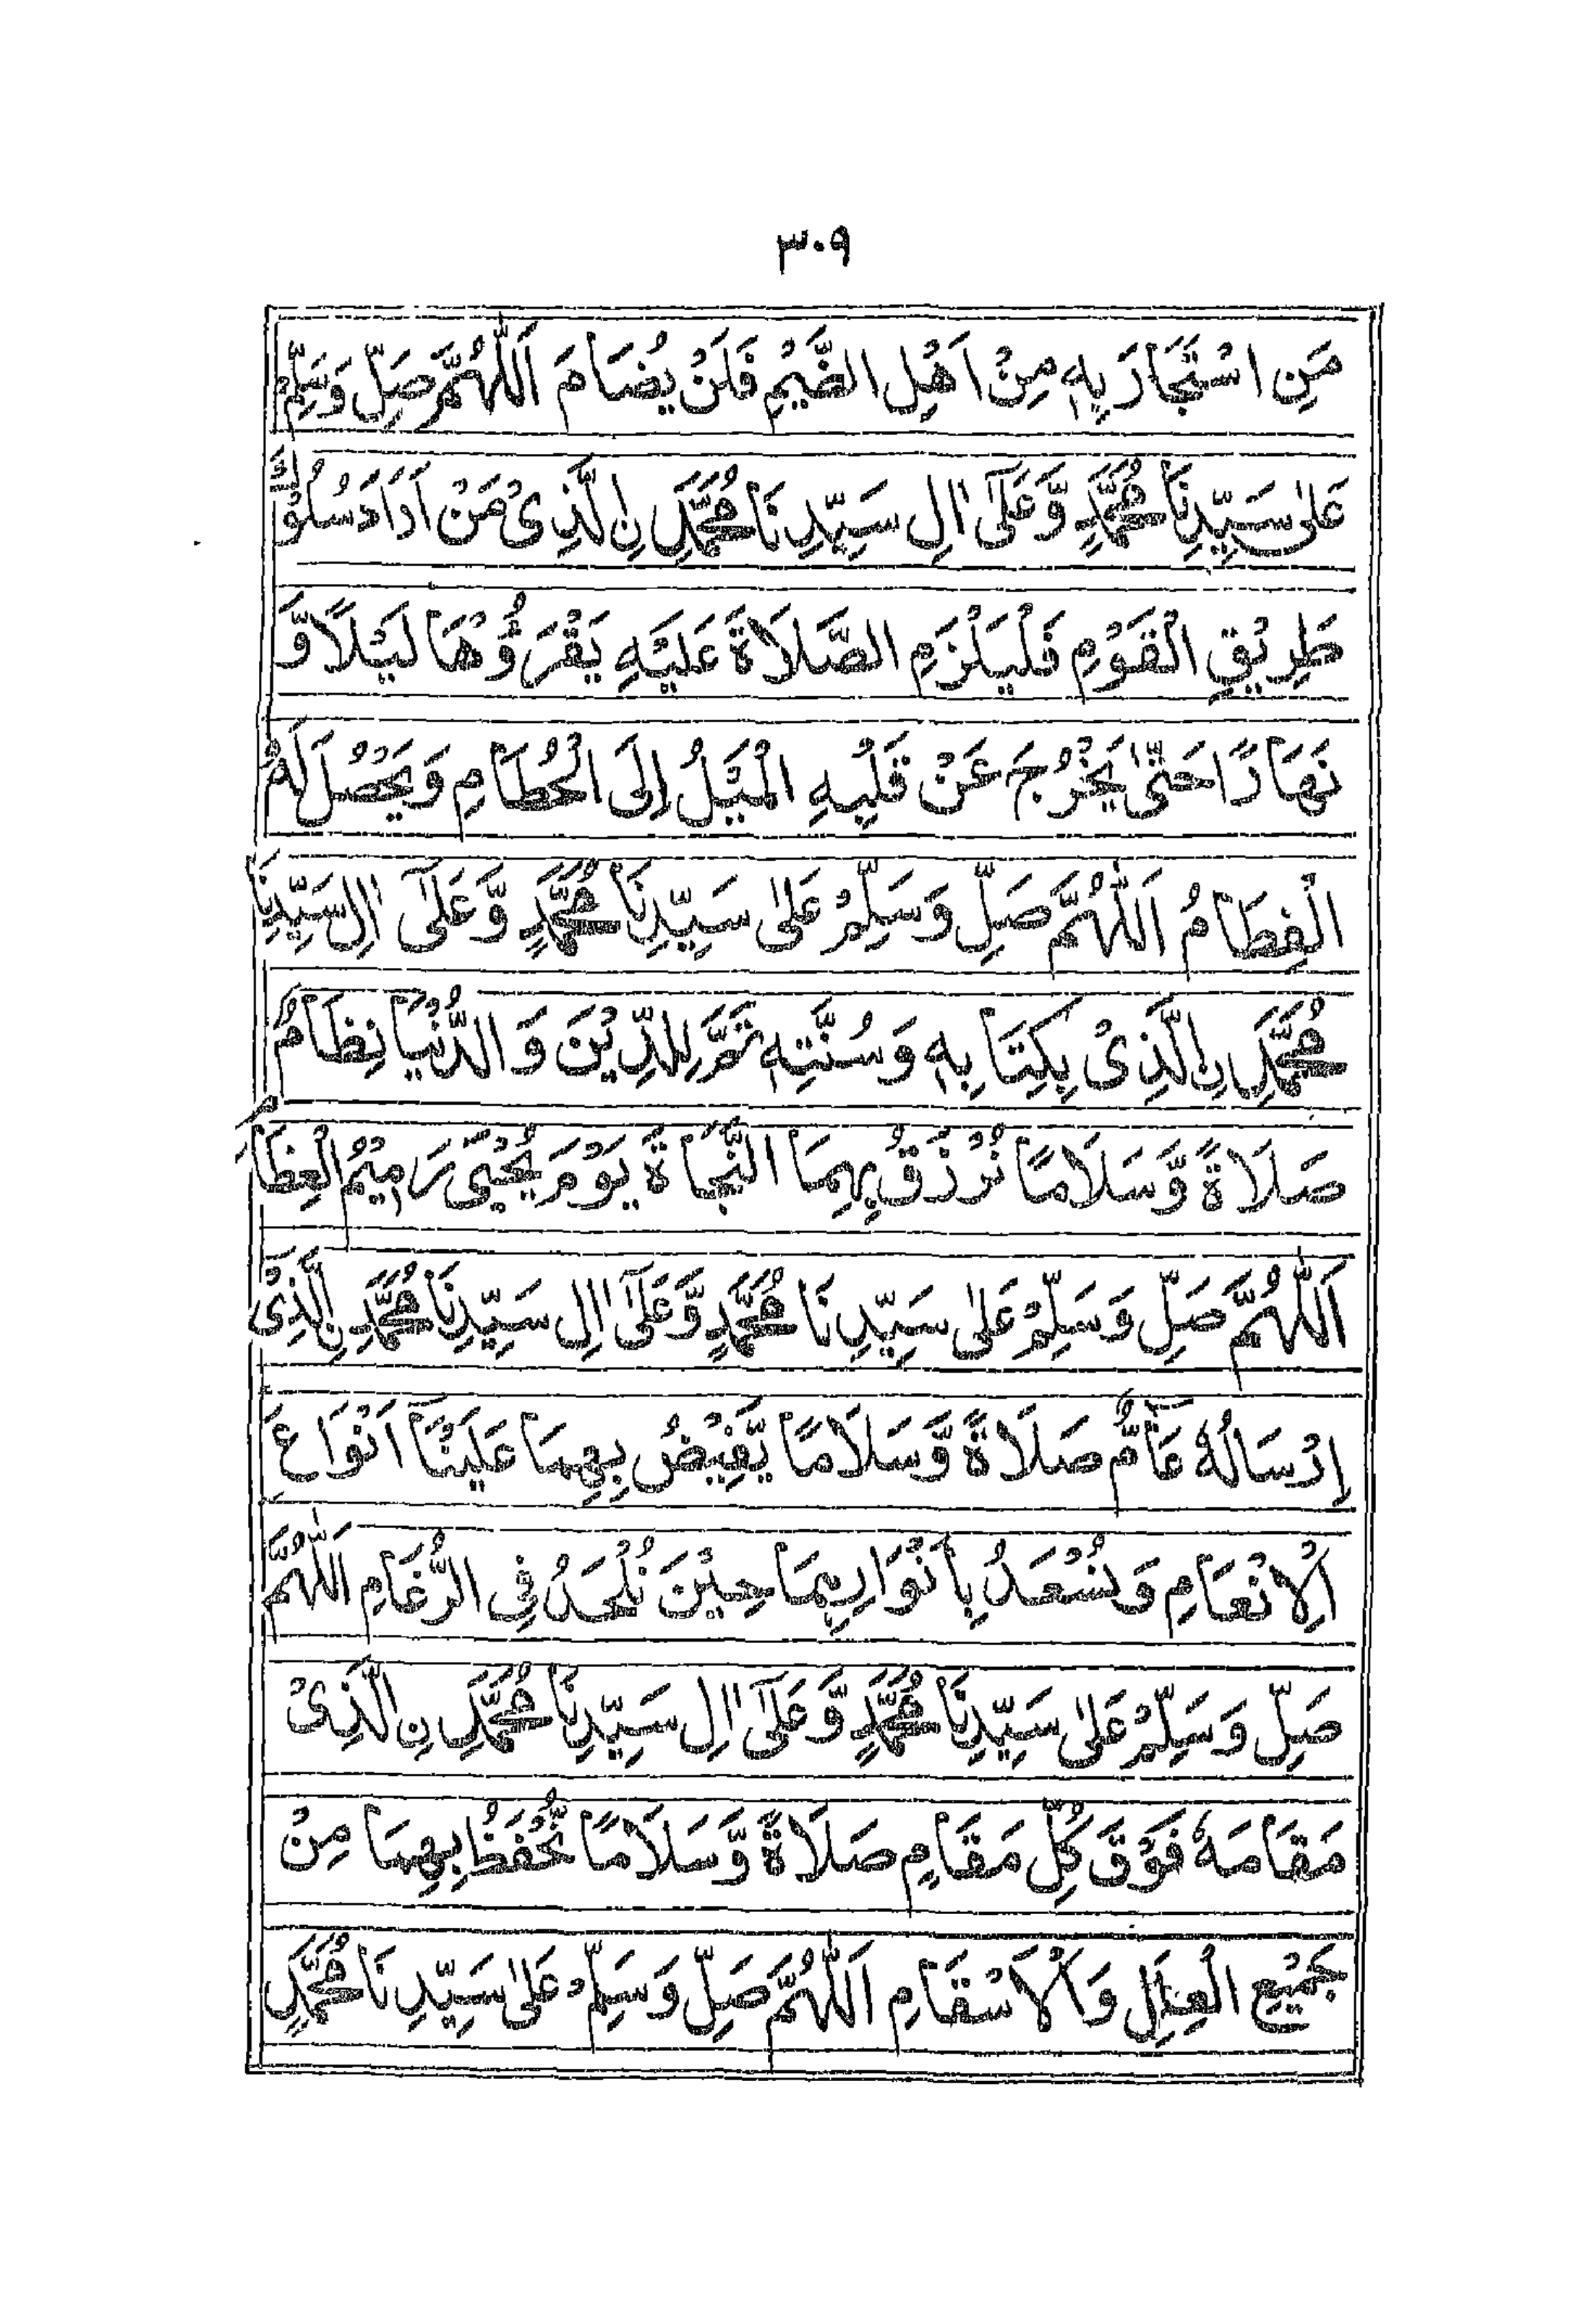 ٣٠٩
مَنِ اسْتَجَارَ بِهٖ مِنْ اَهْلِ الضَّيْمِ فَلَنْ يُضَامَ اَللّٰهُمَّ صَلِّ وَسَلِّمْ
عَلٰى سَيِّدِنَا مُحَمَّدٍ وَّعَلٰٓى اٰلِ سَيِّدِنَا مُحَمَّدِ نِ الَّذِىْ مَنْ اَرَادَ سُلُوْكَ
طَرِيْقِ الْقَوْمِ فَلْيَلْزَمِ الصَّلَاةَ عَلَيْهِ يَقْرَؤُهَا لَيْلًا وَّ
نَهَارًا حَتّٰى يَخْرُجَ عَنْ قَلْبِهِ الْمَيْلُ اِلَى الْحُطَامِ وَيَحْصُلَ لَهُ
الْفِطَامُ اَللّٰهُمَّ صَلِّ وَسَلِّمْ عَلٰى سَيِّدِنَا مُحَمَّدٍ وَّعَلٰٓى اٰلِ سَيِّدِنَا
مُحَمَّدِ نِ الَّذِىْ بِكِتَابِهٖ وَسُنَّتِهٖ تَمَّ لِلدِّيْنِ وَالدُّنْيَا نِظَامٌ
صَلَاةً وَّسَلَامًا نُرْزَقُ بِهِمَا النَّجَاةَ يَوْمَ يُحْيٰى رَمِيْمُ الْعِظَامِ
اَللّٰهُمَّ صَلِّ وَسَلِّمْ عَلٰى سَيِّدِنَا مُحَمَّدٍ وَّعَلٰٓى اٰلِ سَيِّدِنَا مُحَمَّدِ نِ الَّذِىْ
اِرْسَالُهٗ عَآمٌّ صَلَاةً وَّسَلَامًا يَّفِيْضُ بِهِمَا عَلَيْنَآ اَنْوَاعَ
اَلْاِنْعَامِ وَنُسْعَدُ بِاَنْوَارِهِمَا حِيْنَ نُلْحَدُ فِى الرُّغَامِ اَللّٰهُمَّ
صَلِّ وَسَلِّمْ عَلٰى سَيِّدِنَا مُحَمَّدٍ وَّعَلٰٓى اٰلِ سَيِّدِنَا مُحَمَّدِ نِ الَّذِىْ
مَقَامَهٗ فَوْقَ كُلِّ مَقَامٍ صَلَاةً وَّسَلَامًا نُّحْفَظُ بِهِمَا مِنْ
جَمِيْعِ الْعِلَلِ وَالْاَسْقَامِ اَللّٰهُمَّ صَلِّ وَسَلِّمْ عَلٰى سَيِّدِنَا مُحَمَّدٍ